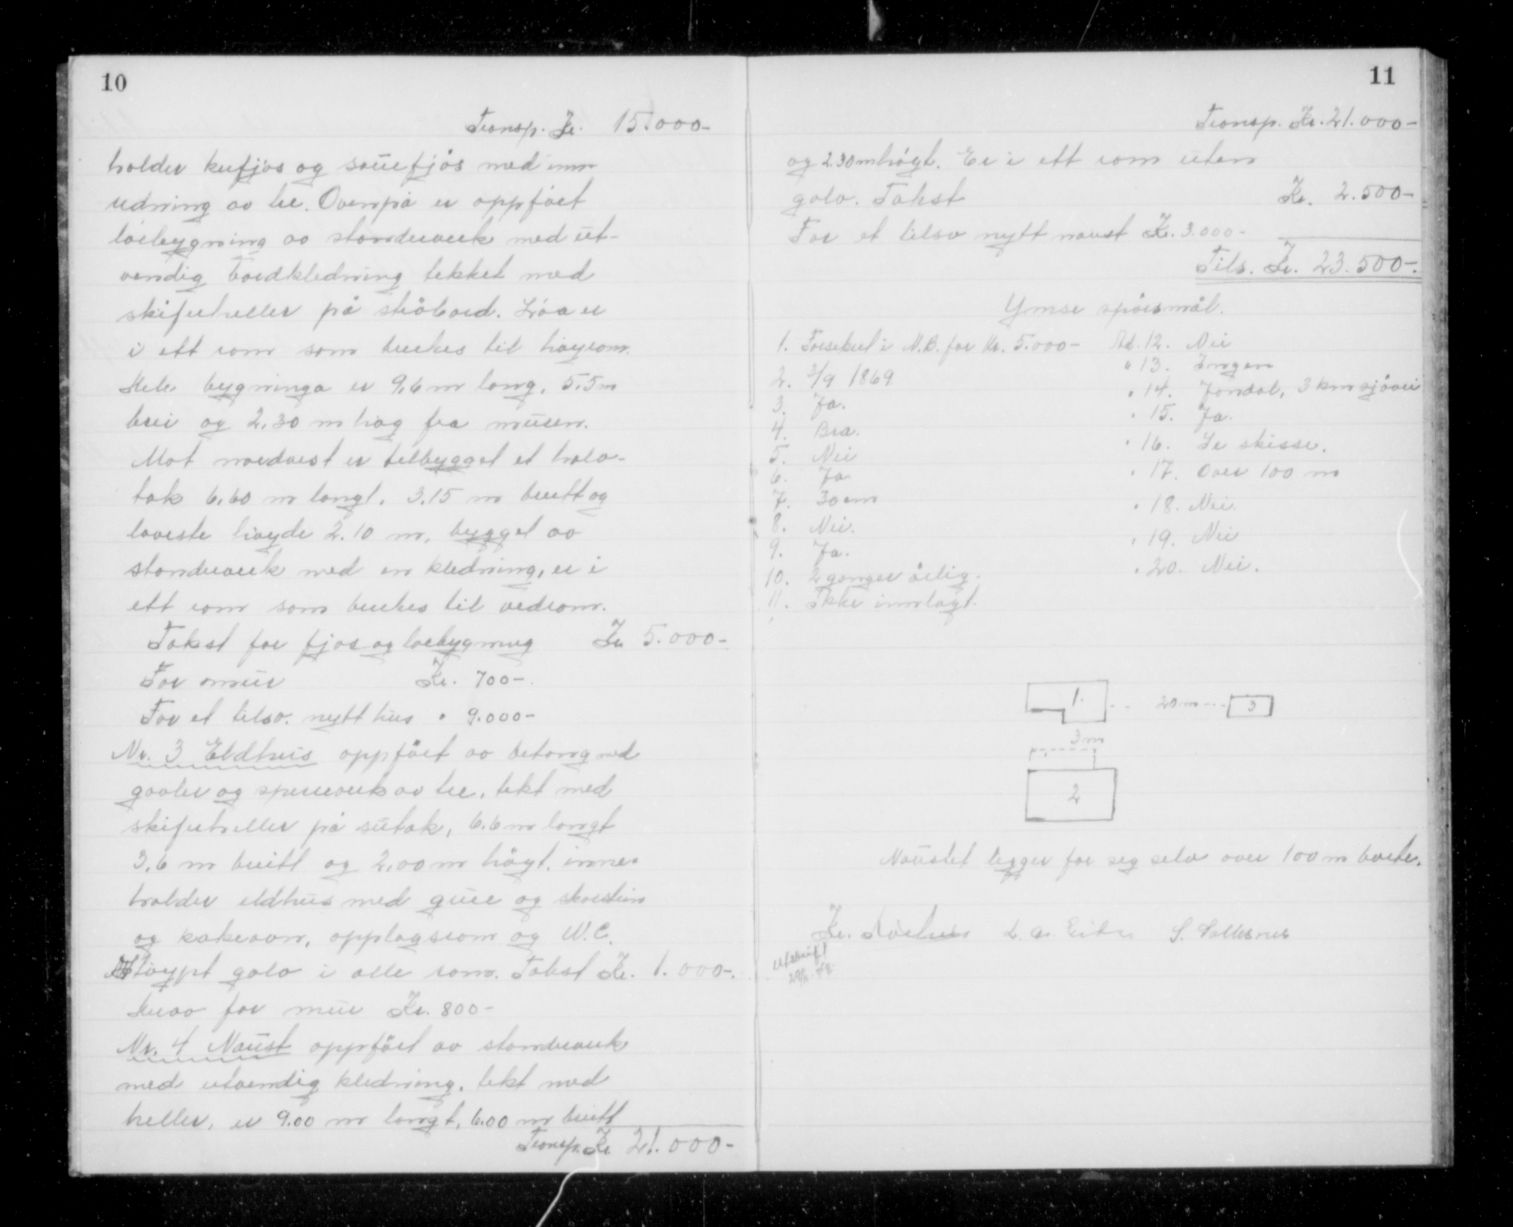 10
Transp. Kr. 15.000-
holder kufjøs og sauefjøs med inn
redning av tre. Ovenpå er oppført
løebygning av standverk med ut-
vendig bordkledning tekket med
skiferheller på stråbord. Løa er
i ett rom som brukes til høyrom.
Hele bygninga er 9,6 m lang, 5.5 m
brei og 2.30 m høg fra muren.
Mot nordvest er tilbygget et halv-
tak 6,60 m langt, 3.15 m breitt og
laveste høyde 2.10 m, bygget av
standverk med en kledning, er i
ett rom som brukes til vedrom.
Takst for fjøs og løebygning Kr 5.000-
For mur Kr. 700-
For et tilsv. nytt hus " 9.000-
Nr. 3 Eldhus oppført av betong med
gavler og sperreverk av tre, tekt med
skiferheller på sutak, 6.6 m langt
3,6 m breitt og 2,00 m høgt. inne-
holder eldhus med grue og skorstein
og kakeovn, opplagsrom og W.C.
Støypt golv i alle rom. Takst Kr. 1.000-.
herav for mur Kr. 800-
Nr. 4 Naust oppført av standverk
med utvendig kledning, tekt med
heller, er 9.00 m langt, 6.00 m breitt
Transp. Kr 21.000-
11
Transp. Kr. 21.000-
og 2.30 m høgt. Er i ett rom uten
golv. Takst Kr. 2.500-
For et tilsv nytt naust Kr. 3.000-
Tils. Kr. 23.500-.
Ymse spørsmål.
1. Forsikret i N.B. for Kr. 5.000-
2. 2/9 1869
3. Ja.
4. Bra.
5. Nei
6. Ja
7. 30 cm
8. Nei.
9. Ja.
10. 2 ganger årlig.
11. Ikke innlagt.
Ad. 12. Nei
" 13. Ingen
" 14. Jondal, 3 km sjøvei
" 15. Ja.
" 16. Se skisse.
" 17. Over 100 m
" 18. Nei.
" 19. Nei
" 20. Nei.
1. 20 m 3
3 m
2
Naustet ligger for seg selv over 100 m borte.
Utskrift